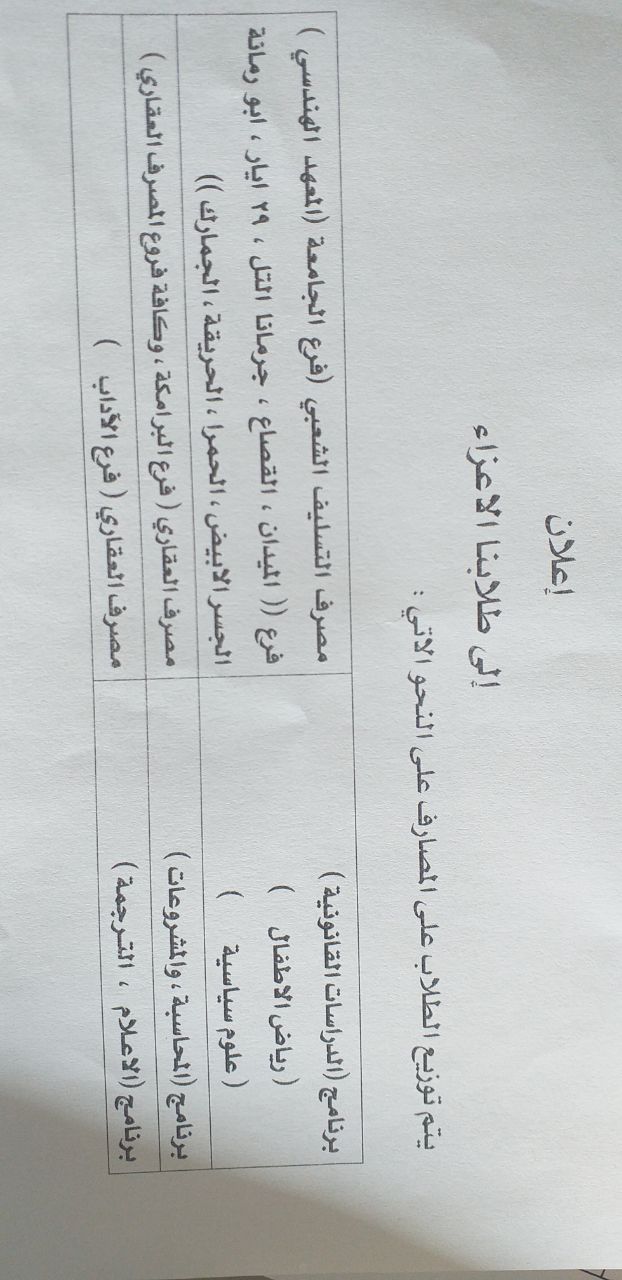 إعلان
إلى طلابنا الاعزاء
يتم توزيع الطلاب على المصارف على النحو الاتي :
برنامج (الدراسات القانونية )
( رياض الاطفال )
( علوم سياسية )
مصرف التسليف الشعبي (فرع الجامعة ((المعهد الهندسي )
فرع (( الميدان ، القصاع ، جرمانا التل ، ٢٩ ايار ، ابو رمانة
الجسر الابيض ، الحمرا ، الحريقة ، الجمارك ))
برنامج (المحاسبة ، والمشروعات )
مصرف العقاري ( فرع البرامكة ، وكافة فروع المصرف العقاري )
برنامج (الاعلام ، الترجمة )
مصرف العقاري ( فرع الآداب )